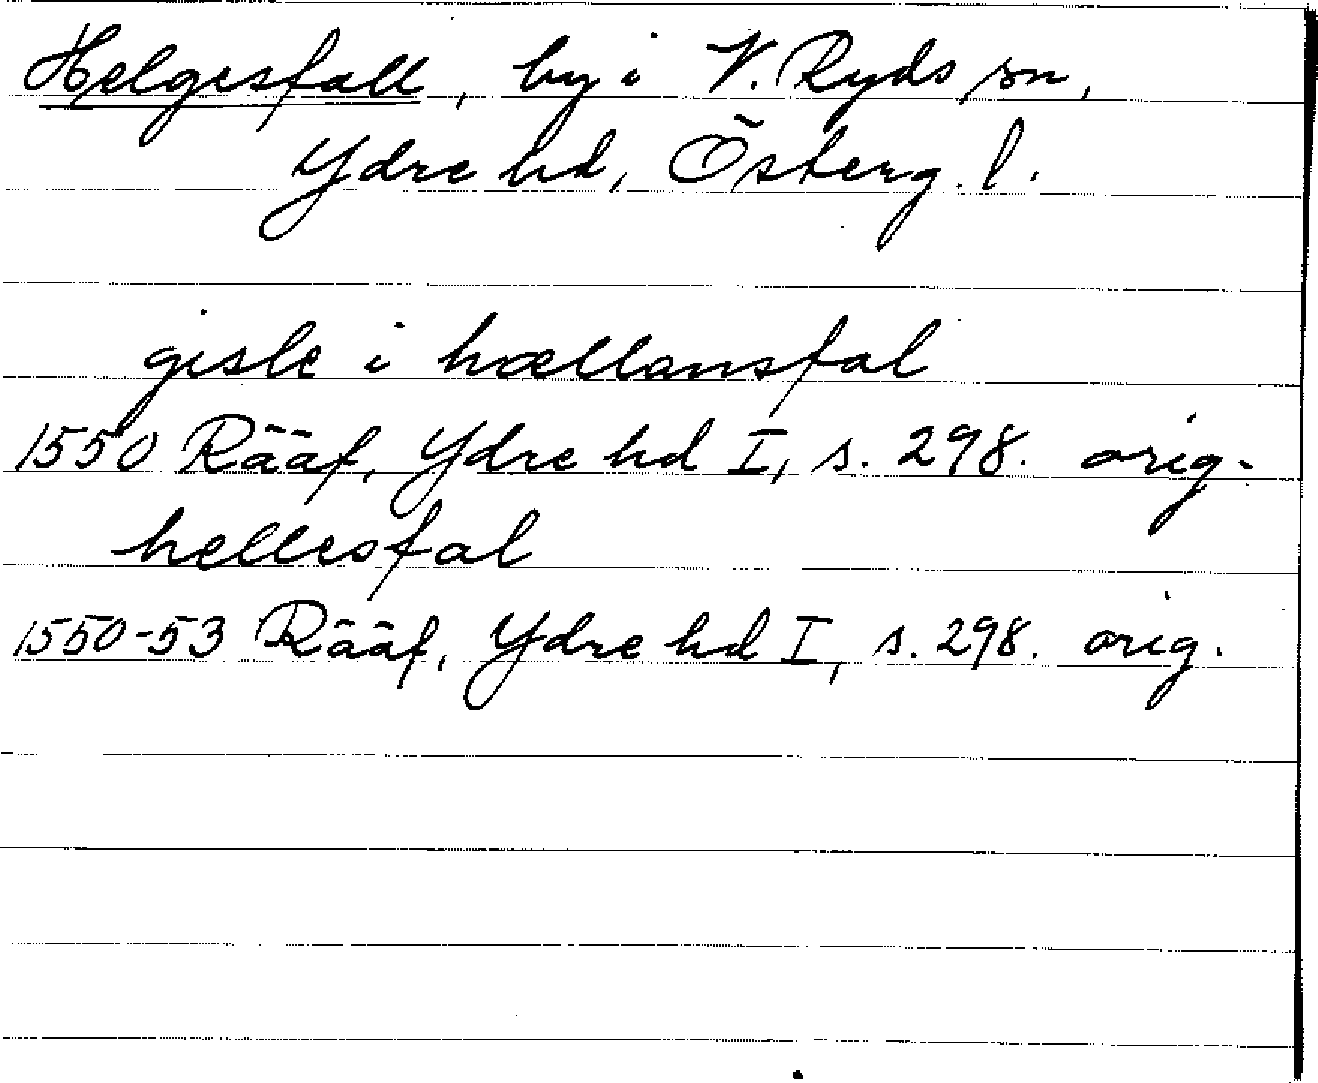 Helgesfall, by i V. Ryds sn,
Ydre hd, Österg. l.
gisle i hællansfal
1550 Rääf, Ydre hd I, s. 298. orig.
hellesfal
1550-53 Rääf, Ydre hd I, s. 298. orig.